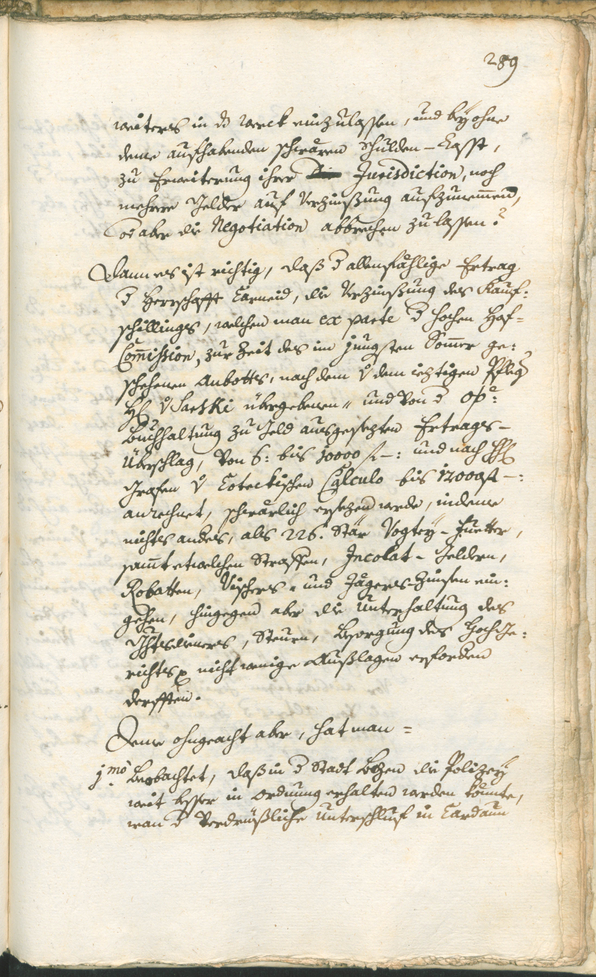 289
weiters in das werck einzulassen, und bey ohne
deme aufhabenden schwären Schulden-Last,
zu Erweiterung ihrer Jurisdiction, noch
mehrere Gelder auf Verzinßung aufzunemen,
od aber die Negotiation abbrechen zu lassen?
Dann es ist richtig, daß d allenfählige Ertrag
d Herrschafft Carneid, die Verzinßung des Kauf-
schillings, welchen man ex parte d hohen Hof-
Commission, zur Zeit des im jüngsten Sommer ge-
schehenen Anbotts, nach dem v dem iezigen Pfleg
H v Sarski übergebenen, und von d
Buchhaltung zu Geld ausgesezten Ertrags-
Überschlag, von 6: bis 10000 f -: und nach H
Grafen v Coreckischen Calculo bis 12000 f -:
anrechnet, schwärlich ersezen werde, indeme
nichts anders, als 226. Stär Vogtey-Fuetter,
sammt etwelchen Straffen, Incolat-Geldern,
Robatten, Vischers- und Jägers-Zinsen ein-
gehen, hingegen aber die Unterhaltung des
Steuren, Besorgung des Hochge-
richts nicht wenige Außlagen erfordern
derfften.
Deme ohngeacht aber, hat man =
jmo Beobachtet, daß in d Stadt Bozen die Polizey
weit besser in Ordnung erhalten werden könnte,
wan d verdrüßliche Unterschluf in Cardaun